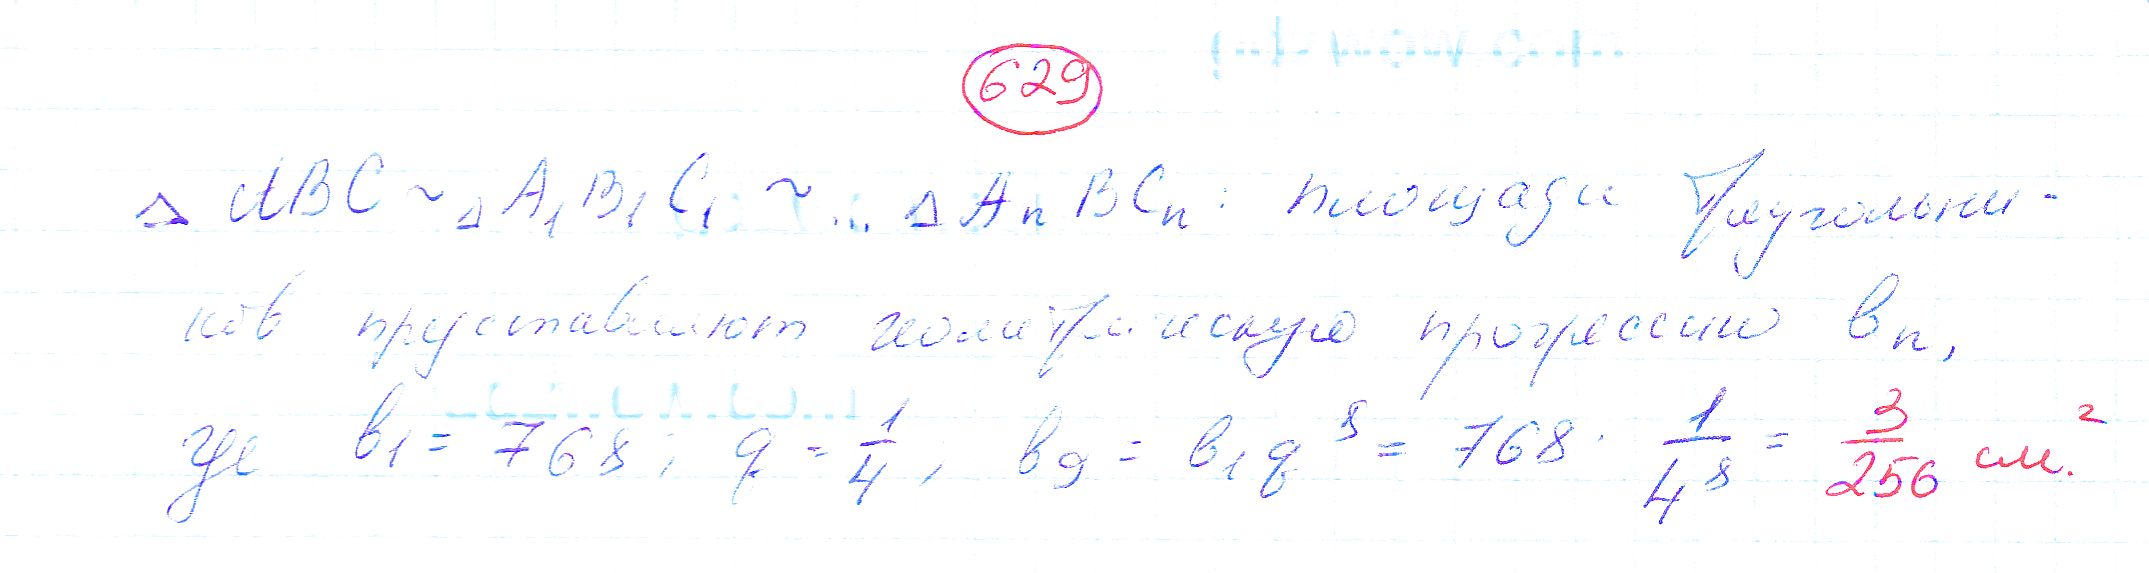 629
△ABC ~ △A₁B₁C₁ ~ ... △AₙBCₙ: площади треугольни-
ков представляют геометрическую прогрессию bₙ,
где b₁ = 768; q = 1/4; b₉ = b₁q⁸ = 768 · 1/4⁸ = 3/256 см.²